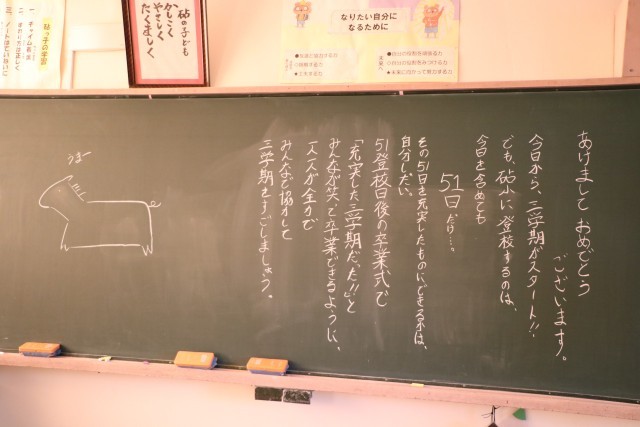 あけまして おめでとう
ございます。
今日から、三学期がスタート!!
でも、砧小に登校するのは、
今日を含めても
51日だけ…。
その51日を充実したものにできるかは、
自分しだい。
51登校日後の卒業式で
「充実した三学期だった!!」と
みんなが笑って卒業できるように、
一人一人が全力で
みんなで協力して
三学期をすごしましょう。
うまー
なりたい自分に
なるために
砧の子ども
かしこく
やさしく
たくましく
砧っ子の学習
一 チャイム着席